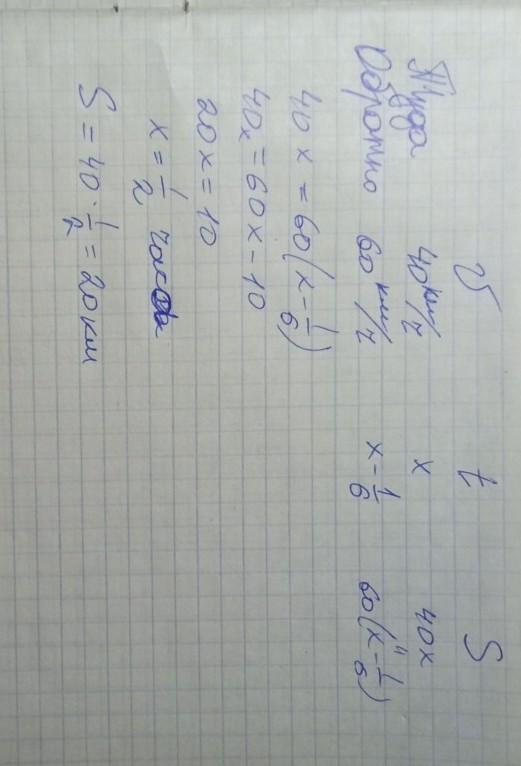 v t S
Туда 40 км/ч x 40x
Обратно 60 км/ч x - 1/6 60(x - 1/6)
40x = 60(x - 1/6)
40x = 60x - 10
20x = 10
x = 1/2 часа
S = 40 · 1/2 = 20 км